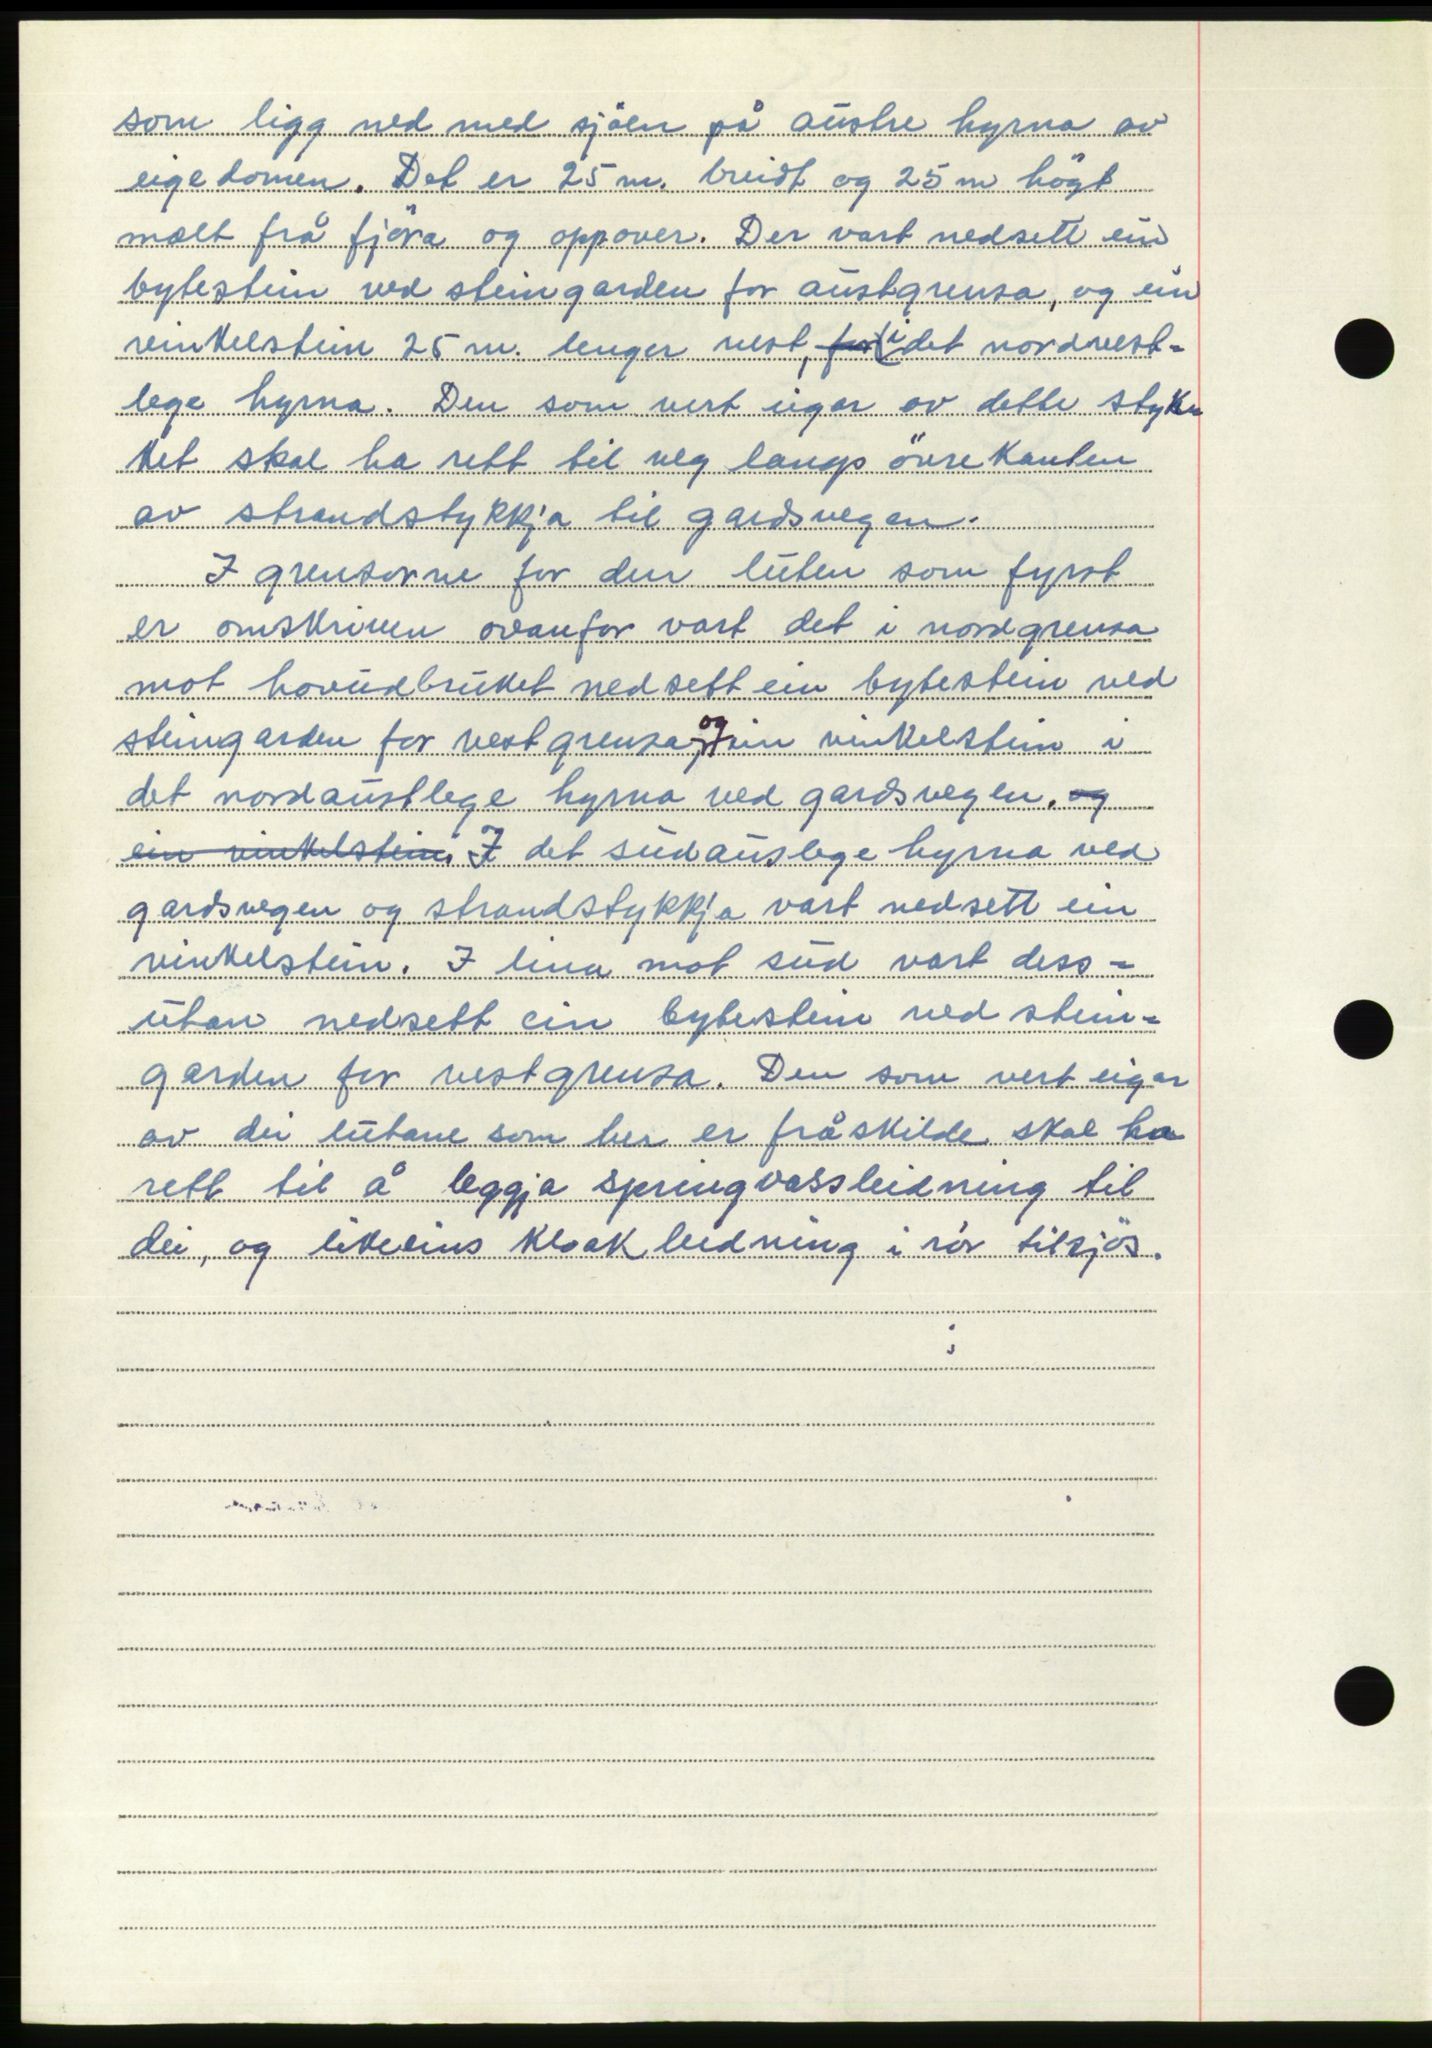 som ligg ned med sjöen på austre hyrna av
eigedomen. Det er 25 m. breidt og 25 m högt
mælt frå fjöra og oppover. Der vart nedsett ein
bytestein ved steingarden for austgrensa, og ein
vinkelstein 25 m. lenger vest, for i det nordvest-
lege hyrna. Den som vert eigar av dette styk-
ket skal ha rett til veg langs övre kanten
av strandstykkja til gardsvegen.
I grensorne for den luten som fyrst
er omskriven ovanfor vart det i nordgrensa
mot hovudbruket nedsett ein bytestein ved
steingarden for vestgrensa, og ein vinkelstein i
det nordaustlege hyrna ved gardsvegen. og
ein vinkelstein. I det sudauslege hyrna ved
gardsvegen og strandstykkja vart nedsett ein
vinkelstein. I lina mot sud vart dess-
utan nedsett ein bytestein ved stein-
garden for vestgrensa. Den som vert eigar
av dei lutane som her er fråskilde skal ha
rett til å leggja springvassleidning til
dei, og likeeins kloakleidning i rör til sjös.